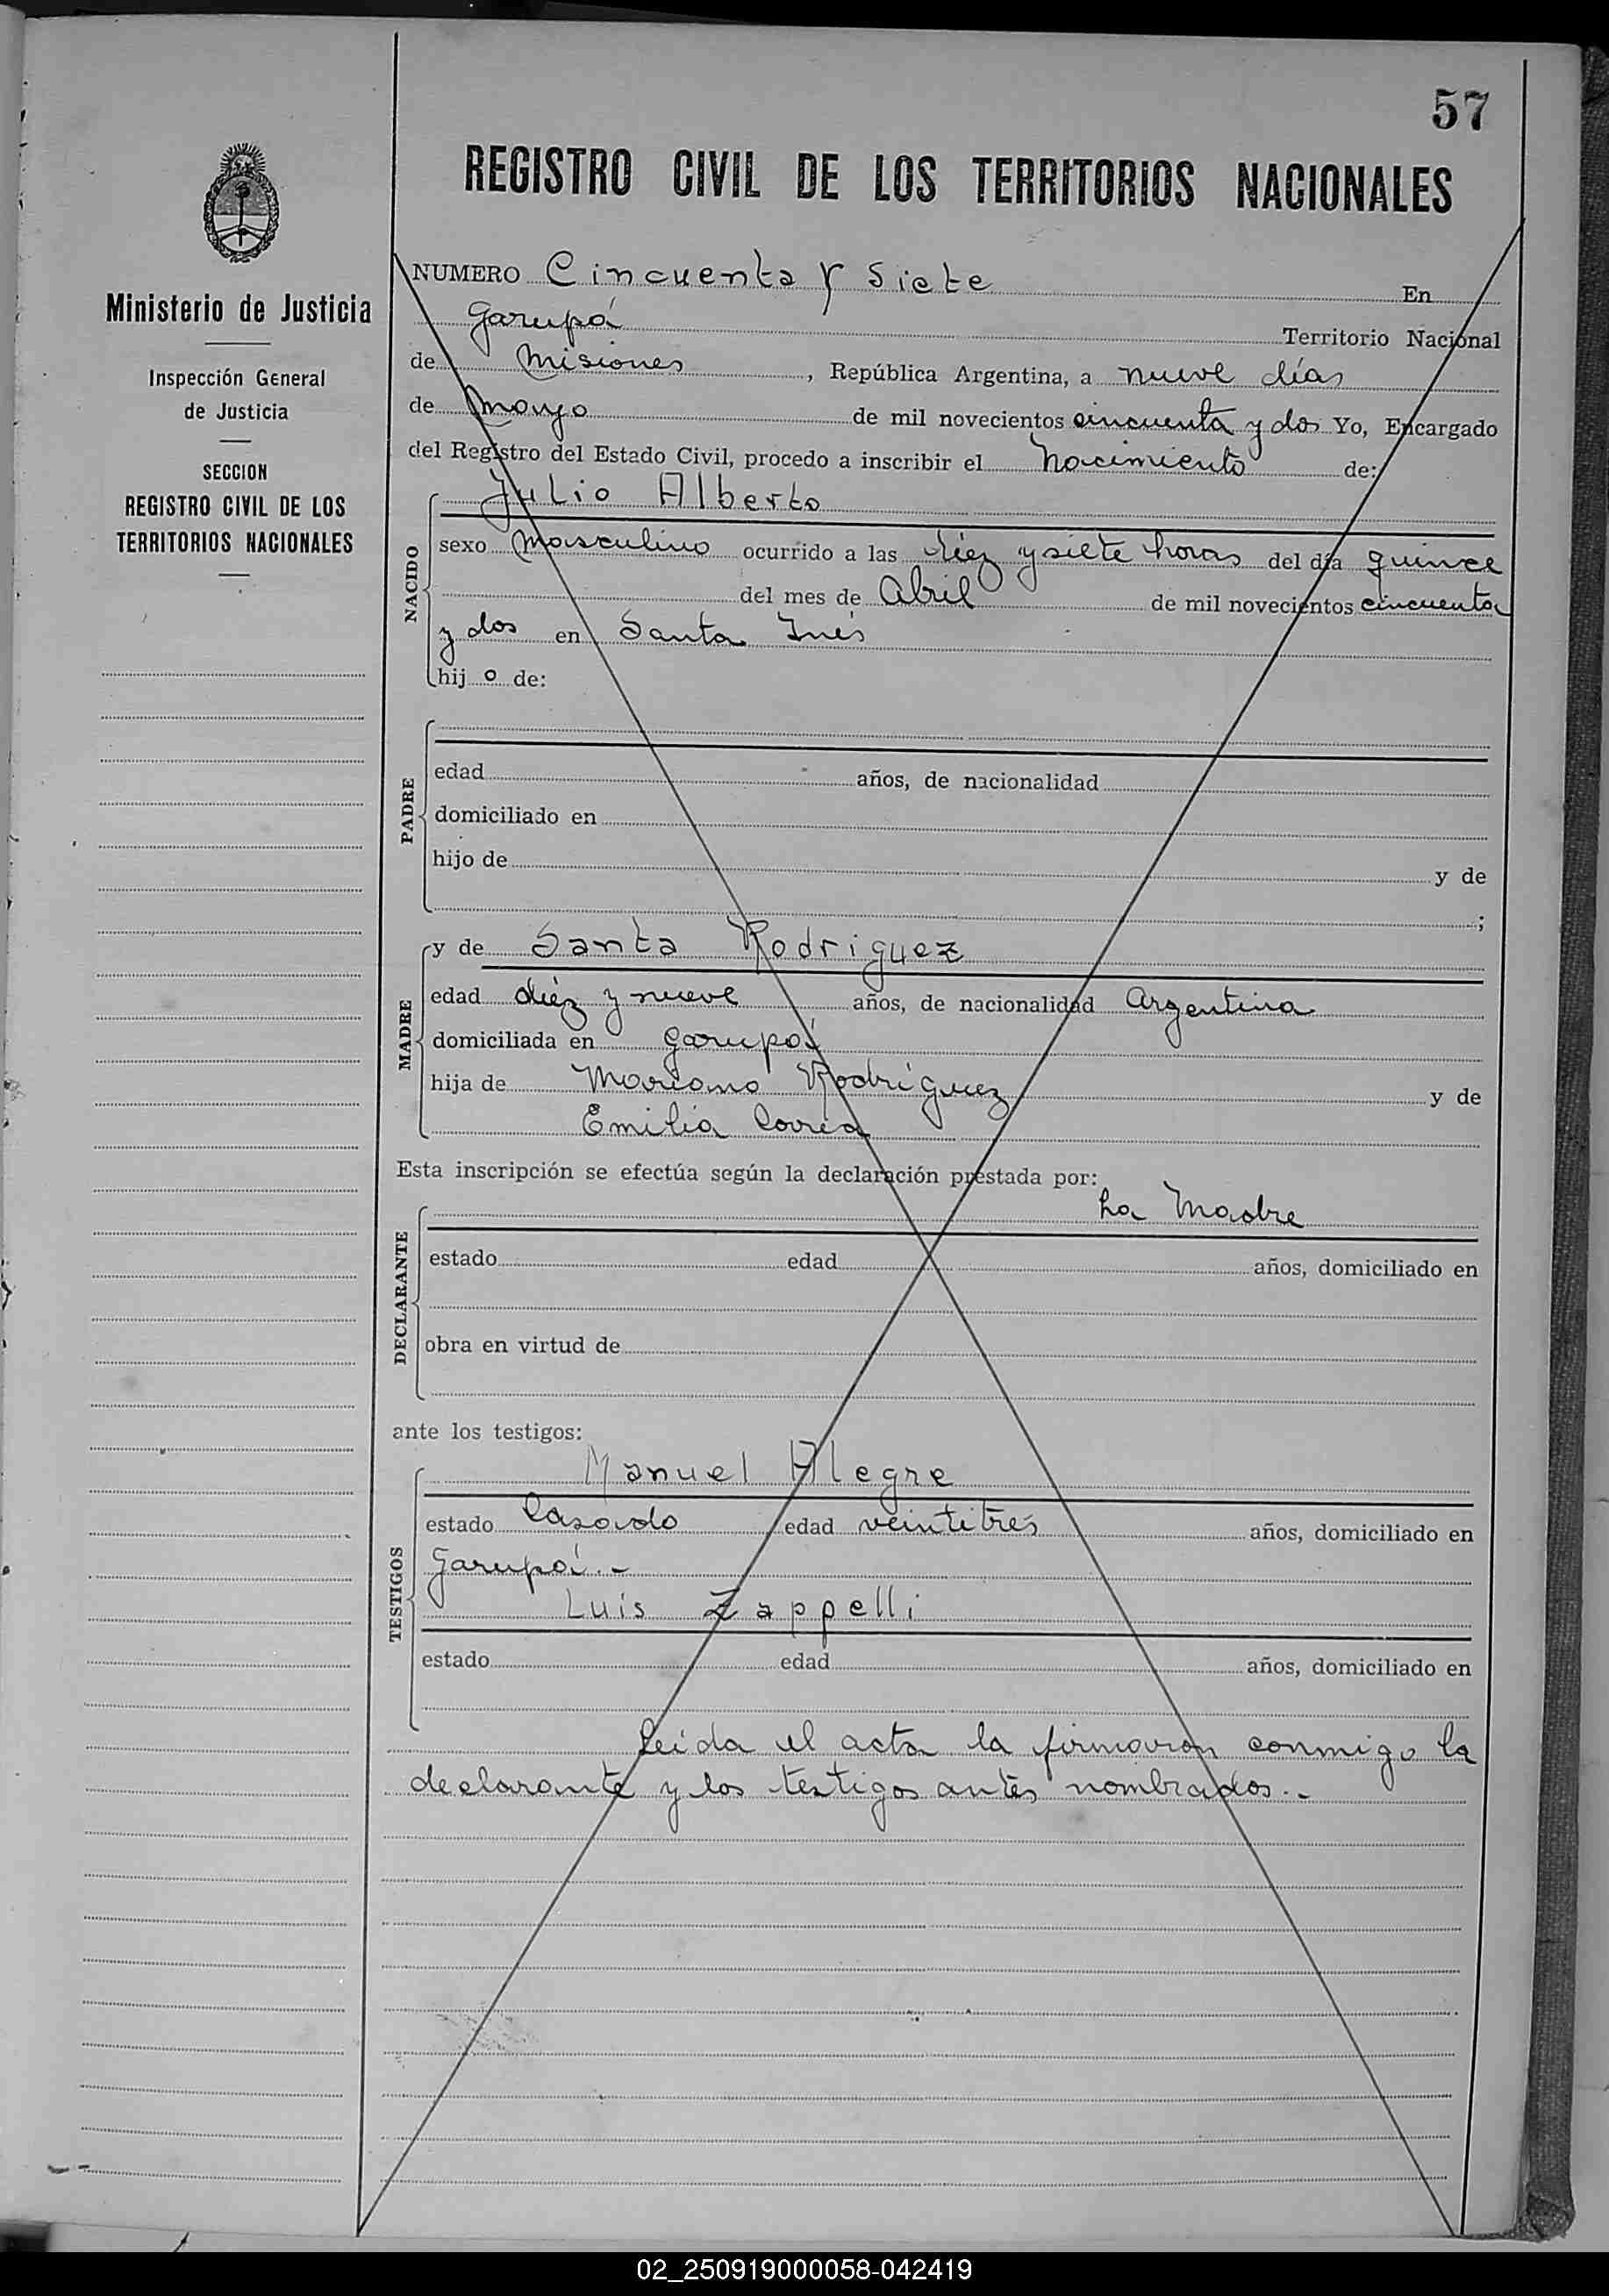 57
REGISTRO CIVIL DE LOS TERRITORIOS NACIONALES
Ministerio de Justicia
Inspección General
de Justicia
SECCION
REGISTRO CIVIL DE LOS
TERRITORIOS NACIONALES
NUMERO Cincuenta y Siete En
Garupá Territorio Nacional
de Misiones, República Argentina, a nueve días
de Mayo de mil novecientos cincuenta y dos Yo, Encargado
del Registro del Estado Civil, procedo a inscribir el Nacimiento de:
NACIDO
Julio Alberto
sexo Masculino ocurrido a las diéz y siete horas del día quince
del mes de Abril de mil novecientos cincuenta
y dos en Santa Inés
hijo de:
PADRE
edad años, de nacionalidad
domiciliado en
hijo de y de
;
MADRE
y de Santa Rodriguez
edad diéz y nueve años, de nacionalidad Argentina
domiciliada en Garupá
hija de Mariano Rodríguez y de
Emilia Correa
Esta inscripción se efectúa según la declaración prestada por:
DECLARANTE
La Madre
estado edad años, domiciliado en
obra en virtud de
ante los testigos:
TESTIGOS
Manuel Alegre
estado Casado edad veintitrés años, domiciliado en
Garupá.-
Luis Zappelli
estado edad años, domiciliado en
Leída el acta la firmaron conmigo la
declarante y los testigos antes nombrados.-
02_250919000058-042419